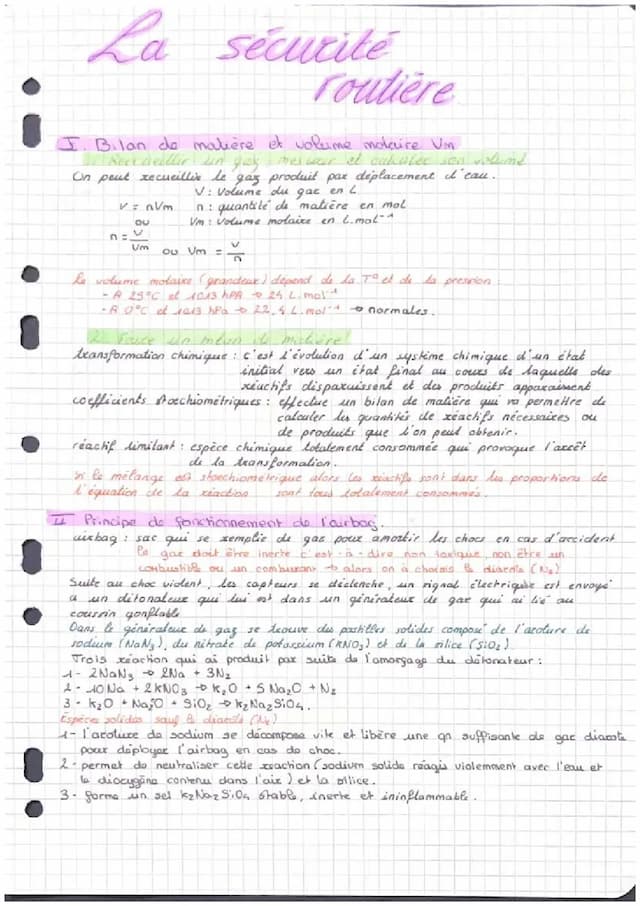 La sécurité
routière
I. Bilan de matière et volume molaire Vm
1. Recueillir un gaz, mesurer et calculer son volume
On peut recueillir le gaz produit par déplacement d'eau.
V : Volume du gaz en L
V = nVm n : quantité de matière en mol
ou Vm : Volume molaire en L.mol⁻¹
n = V/Vm ou Vm = V/n
Le volume molaire (grandeur) dépend de la T° et de la pression :
- A 25°C et 1013 hPA → 24 L.mol⁻¹
- A 0°C et 1013 hPa → 22,4 L.mol⁻¹ → normales.
2. Faire un bilan de matière
transformation chimique : c'est l'évolution d'un système chimique d'un état
initial vers un état final au cours de laquelle des
réactifs disparaissent et des produits apparaissent
coefficients stoechiométriques : effectue un bilan de matière qui va permettre de
calculer les quantités de réactifs nécessaires ou
de produits que l'on peut obtenir.
réactif limitant : espèce chimique totalement consommée qui provoque l'arrêt
de la transformation.
si le mélange est stoechiométrique alors les réactifs sont dans les proportions de
l'équation de la réaction sont tous totalement consommés.
II Principe de fonctionnement de l'airbag.
airbag : sac qui se remplie de gaz pour amortir les chocs en cas d'accident
le gaz doit être inerte c'est-à-dire non toxique, non être un
combustible ou un comburant → alors on a choisis le diazote (N₂)
Suite au choc violent, les capteurs se déclenche, un signal électrique est envoyé
a un détonateur qui lui est dans un générateur de gaz qui ai lié au
coussin gonflable
Dans le générateur de gaz se trouve des pastilles solides composé de l'azoture de
sodium (NaN₃), du nitrate de potassium (KNO₃) et de la silice (SiO₂)
Trois réaction qui ai produit par suite de l'amorçage du détonateur :
1 - 2NaN₃ → 2Na + 3N₂
2 - 10Na + 2KNO₃ → K₂O + 5Na₂O + N₂
3 - K₂O + Na₂O + SiO₂ → K₂Na₂SiO₄.
Espèces solides sauf le diazote (N₂)
1 - l'azoture de sodium se décompose vite et libère une qn suffisante de gaz diazote
pour déployer l'airbag en cas de choc.
2 - permet de neutraliser cette reaction (sodium solide réagis violemment avec l'eau et
le dioxygène contenu dans l'air) et la silice.
3 - forme un sel K₂Na₂SiO₄ stable, inerte et ininflammable.